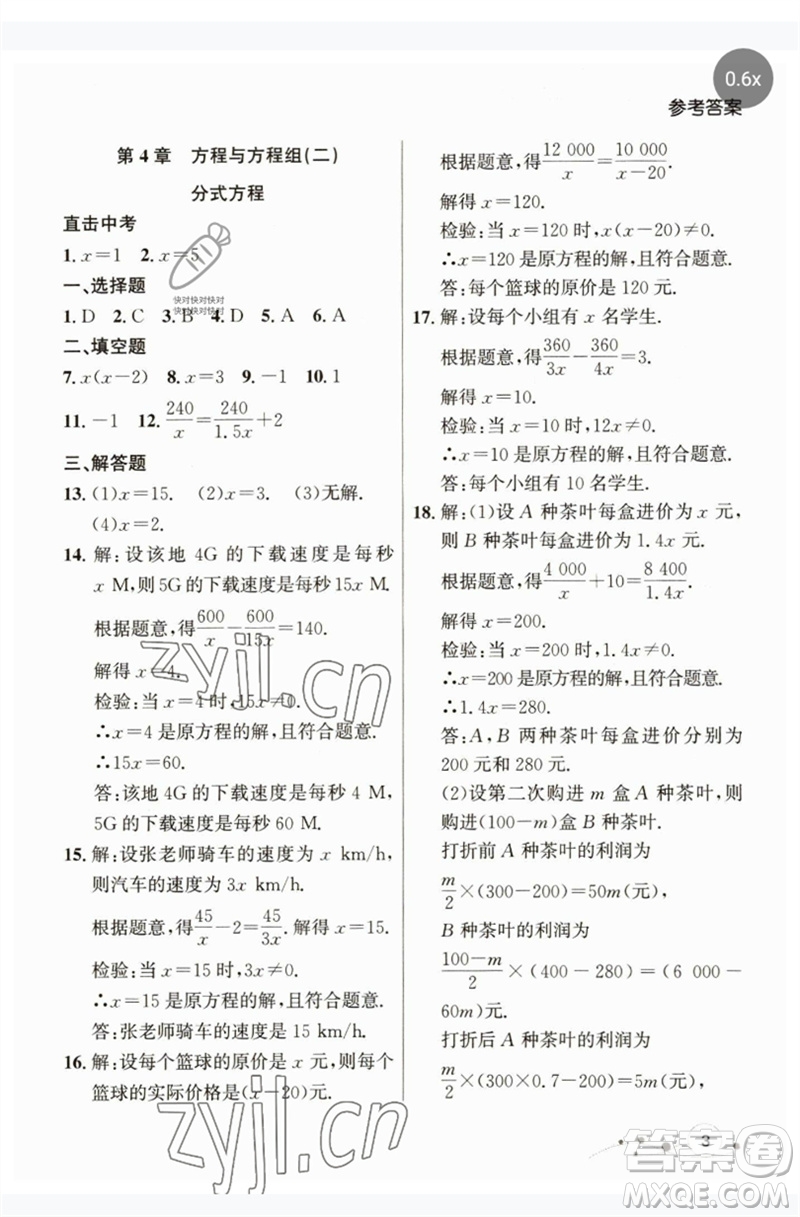 0.6x
参考答案
第 4 章 方程与方程组(二)
分式方程
直击中考
1. x=1 2. x=5
快对快对快对
快对快对快对
一、选择题
1. D 2. C 3. B 4. D 5. A 6. D
二、填空题
7. x(x-2) 8. x=3 9. -1 10. 1
11. -1 12. 240/x=240/1.5x+2
三、解答题
13. (1)x=15. (2)x=3. (3)无解.
(4)x=2.
14. 解:设该地 4G 的下载速度是每秒
x M,则 5G 的下载速度是每秒15x M.
根据题意,得600/x-600/15x=140.
解得 x=4.
检验:当 x=4 时,15x≠0.
∴x=4 是原方程的解,且符合题意.
∴15x=60.
答:该地 4G 的下载速度是每秒 4 M,
5G 的下载速度是每秒 60 M.
15. 解:设张老师骑车的速度为 x km/h,
则汽车的速度为 3x km/h.
根据题意,得45/x-2=45/3x. 解得 x=15.
检验:当 x=15 时,3x≠0.
∴x=15 是原方程的解,且符合题意.
答:张老师骑车的速度为 15 km/h.
16. 解:设每个篮球的原价是 x 元,则每个
篮球的实际价格是(x-20)元.
根据题意,得12 000/x=10 000/x-20.
解得 x=120.
检验:当 x=120 时,x(x-20)≠0.
∴x=120 是原方程的解,且符合题意.
答:每个篮球的原价是 120 元.
17. 解:设每个小组有 x 名学生.
根据题意,得360/3x-360/4x=3.
解得 x=10.
检验:当 x=10 时,12x≠0.
∴x=10 是原方程的解,且符合题意.
答:每个小组有 10 名学生.
18. 解:(1)设 A 种茶叶每盒进价为 x 元,
则 B 种茶叶每盒进价为 1.4x 元.
根据题意,得4 000/x+10=8 400/1.4x.
解得 x=200.
检验:当 x=200 时,1.4x≠0.
∴x=200 是原方程的解,且符合题意.
∴1.4x=280.
答:A、B 两种茶叶每盒进价分别为
200 元和 280 元.
(2)设第二次购进 m 盒 A 种茶叶,则
购进(100-m)盒 B 种茶叶.
打折前 A 种茶叶的利润为
m/2×(300-200)=50m(元),
B 种茶叶的利润为
100-m/2×(400-280)=(6 000-
60m)元.
打折后 A 种茶叶的利润为
m/2×(300×0.7-200)=5m(元),
3
zyjl.cn
zyjl.cn
答案圈
MXQE.COM